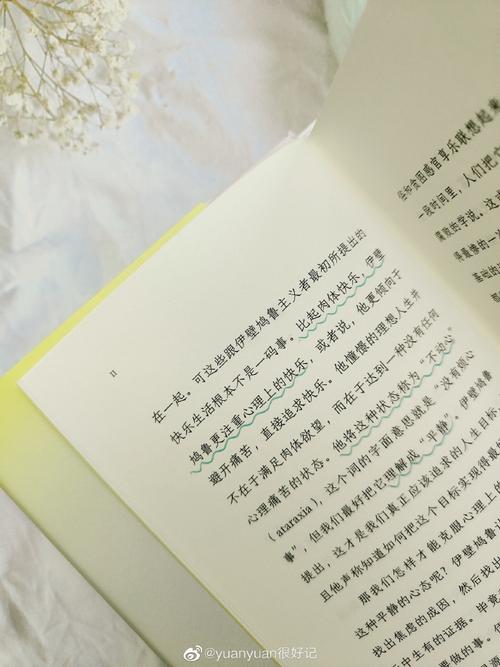 11
在一起。可这些跟伊壁鸠鲁主义者最初所提出的
快乐生活根本不是一码事。比起肉体快乐，伊壁
鸠鲁更注重心理上的快乐，或者说，他更倾向于
避开痛苦，直接追求快乐。他憧憬的理想人生并
不在于满足肉体欲望，而在于达到一种没有任何
心理痛苦的状态。他将这种状态称为“不动心”
（ataraxia），这个词的字面意思就是“没有烦心
事”，但我们最好把它理解成“平静”。伊壁鸠鲁
提出，这才是我们真正应该追求的人生目标
且他声称知道如何把这个目标实现得最
那我们怎样才能克服心理上的
这种平静的心态呢？伊壁鸠鲁
找出焦虑的成因，然后找出
生有的证据。毕竟
要做的事。
会和贪图感官享乐联想起来
一段时间里，人们把它
腐败的学说，这
得最惨的一次
@yuanyuan很好记